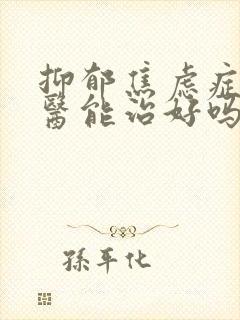 抑郁焦虑症
醫能治好吗
孫平化